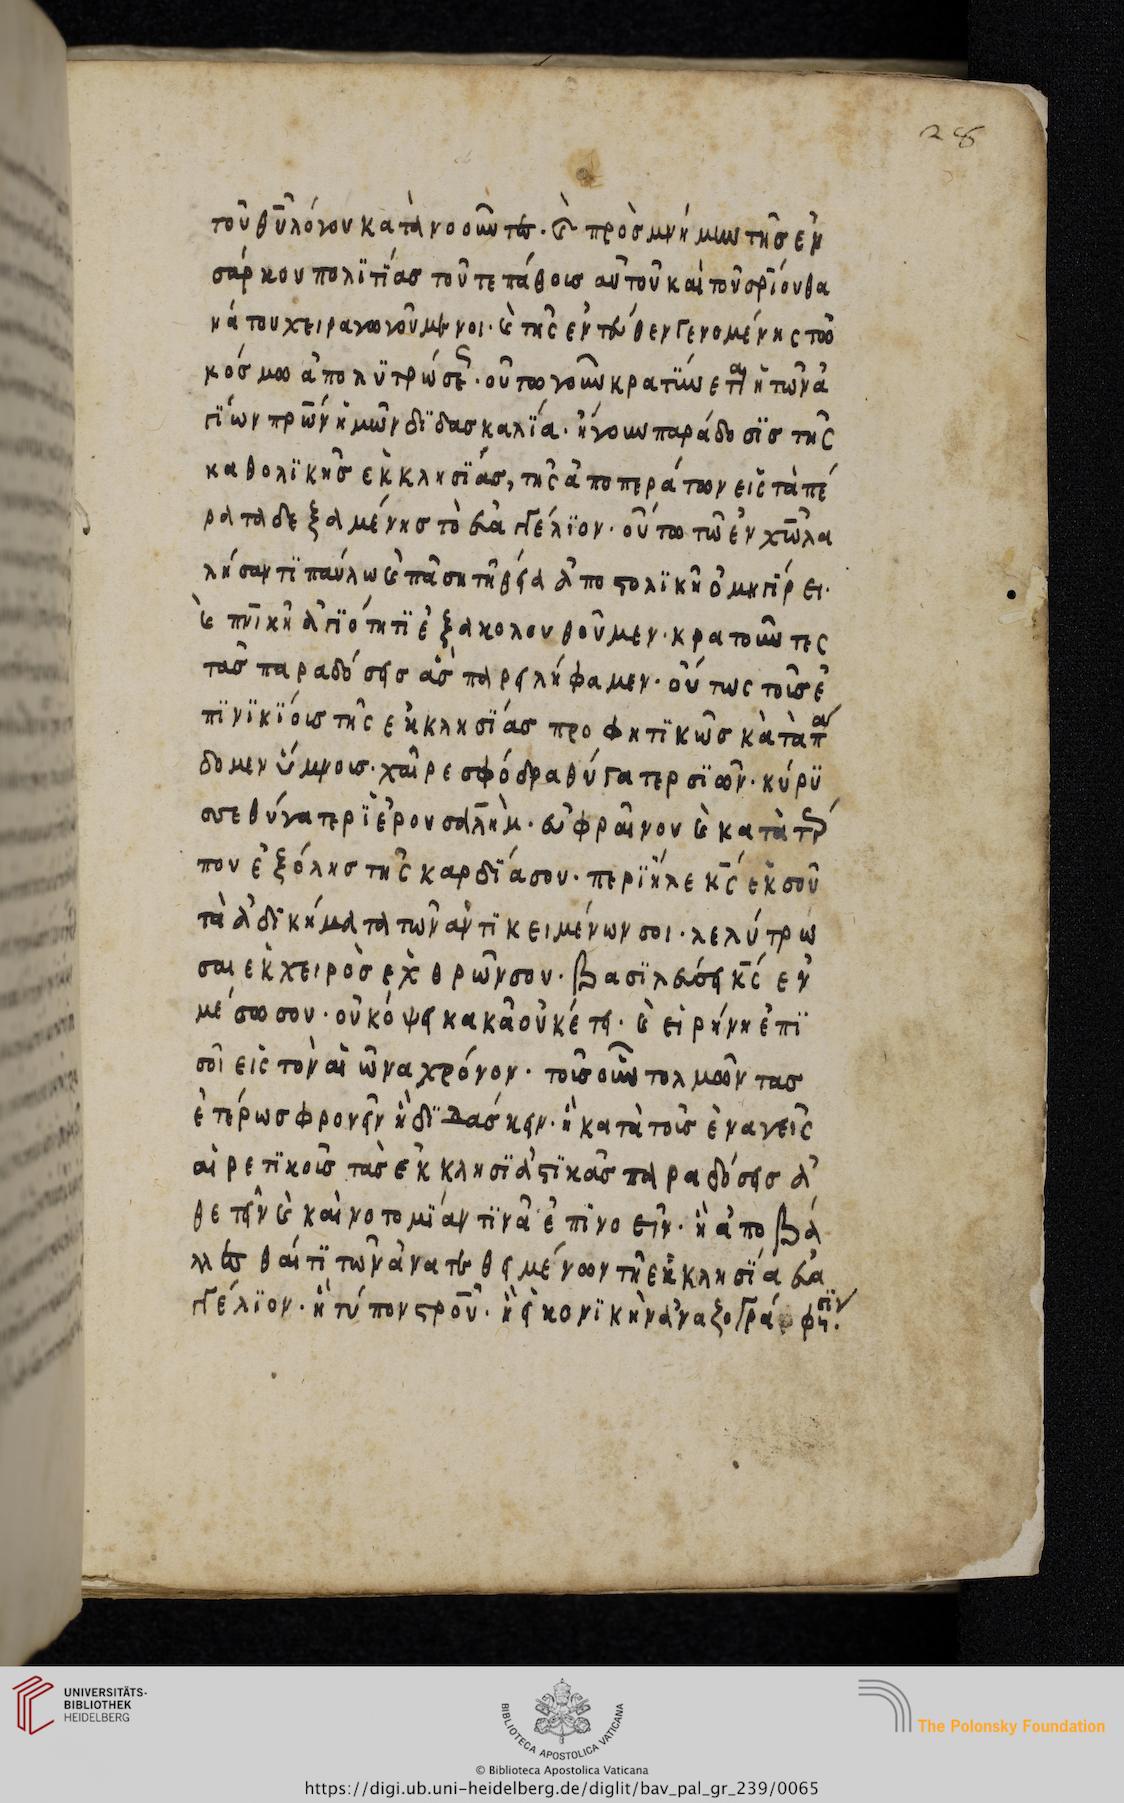 28
τοῦ θ̅υ̅ λόγου κατανοοῦντες· καὶ πρὸς μνήμην τῆς ἐν
σάρκου πολϊτΐας τοῦτε πάθοις αὐτοῦ καὶ τοῦ σρ̅ΐου θα
νάτου χειραγωγούμενοι· καὶ τῆς ἐντεῦθεν γενομένης τοῦ
κόσμου ἀπολϋτρώσεως· οὕτω γοῦν κρατΰνετ(αι) ἡ τῶν ἁ
γΐων πρ̅ω̅ν ἡμῶν δϊδασκαλΐα· ἤγουν παράδοσϊς τῆς
καθολϊκῆς ἐκκλησΐας, τῆς ἀπο περάτων εἰς τὰ πέ
ρατα δεξαμένης τὸ εὐαγγέλϊον· οὕτω τῶ ἐν χ̅ω̅ λα
λήσαντϊ παύλω καὶ πάση τῆ θεία ἀποστολϊκῆ ὁμηγΐρει·
καὶ π̅ν̅ϊκῆ ἁγϊότητϊ ἐξακολουθοῦμεν· κρατοῦντες
τὰς παραδόσεις ἃς παρειλήφαμεν· οὕτως τοῖς ἐ
πϊνϊκΐοις τῆς ἐκκλησΐας προφητϊκῶς κατὰ πα
δομεν ὕμνοις· χαῖρε σφόδρα θύγατερ σϊών· κύρϋ
σσε θύγατερ ϊερουσαλ̅ὴμ· εὐφραίνου καὶ κατὰ τρ
που ἐξόλης τῆς καρδΐας σου· περιεῖλε κ̅ς̅ ἐκ σοῦ
τὰ ἀδϊκήματα τῶν ἀντϊκειμένων σοι· λελύτρω
σαι ἐκ χειρὸς ἐχθρῶν σου· βασϊλεύσει κ̅ς̅ ἐν
μέσω σου· οὐκ όψει κακὰ οὐκέτι· καὶ εἰρήνη ἐπϊ
σοὶ εἰς τὸν αἰῶνα χρόνον· τοῖς οὖν τολμῶντας
ἑτέρως φρονεῖν ἢ δϊδάσκειν· ἢ κατὰ τοῖς ἐναγεῖς
αἱρετϊκοῖς τὰς ἐκκλησϊαστϊκὰς παραδόσεις ἀ
θετεῖν καὶ καινοτομΐαν τϊνὰ ἐπϊνοεῖν· ἢ ἀποβά
λλεσθαί τϊ τῶν ἀνατεθειμένων τῆ ἐκκλησΐα εὐα
γγέλϊον· ἢ τύπον στροῦ· ἢ εἰκονϊκὴν ἀναξογράφησϊν·
UNIVERSITÄTS-
BIBLIOTHEK
HEIDELBERG
BIBLIOTECA APOSTOLICA VATICANA
The Polonsky Foundation
© Biblioteca Apostolica Vaticana
https://digi.ub.uni-heidelberg.de/diglit/bav_pal_gr_239/0065